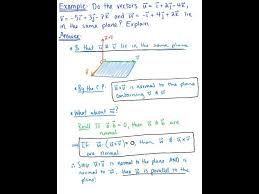 Example: Do the vectors u = i + 2j - 4k,
v = -5i + 3j - 7k and w = -i + 4j + 2k lie
in the same plane? Explain.
Answer:
So that u & v lie in the same plane
By the C.P.
u×v is normal to the plane
containing u & v
What about w?
Recall if a · b = 0, then a & b are
normal
⇒ If w · (u×v) = 0, then w & u×v
are normal.
Since u×v is normal to the plane and is
normal to w, then w is parallel to the
plane!